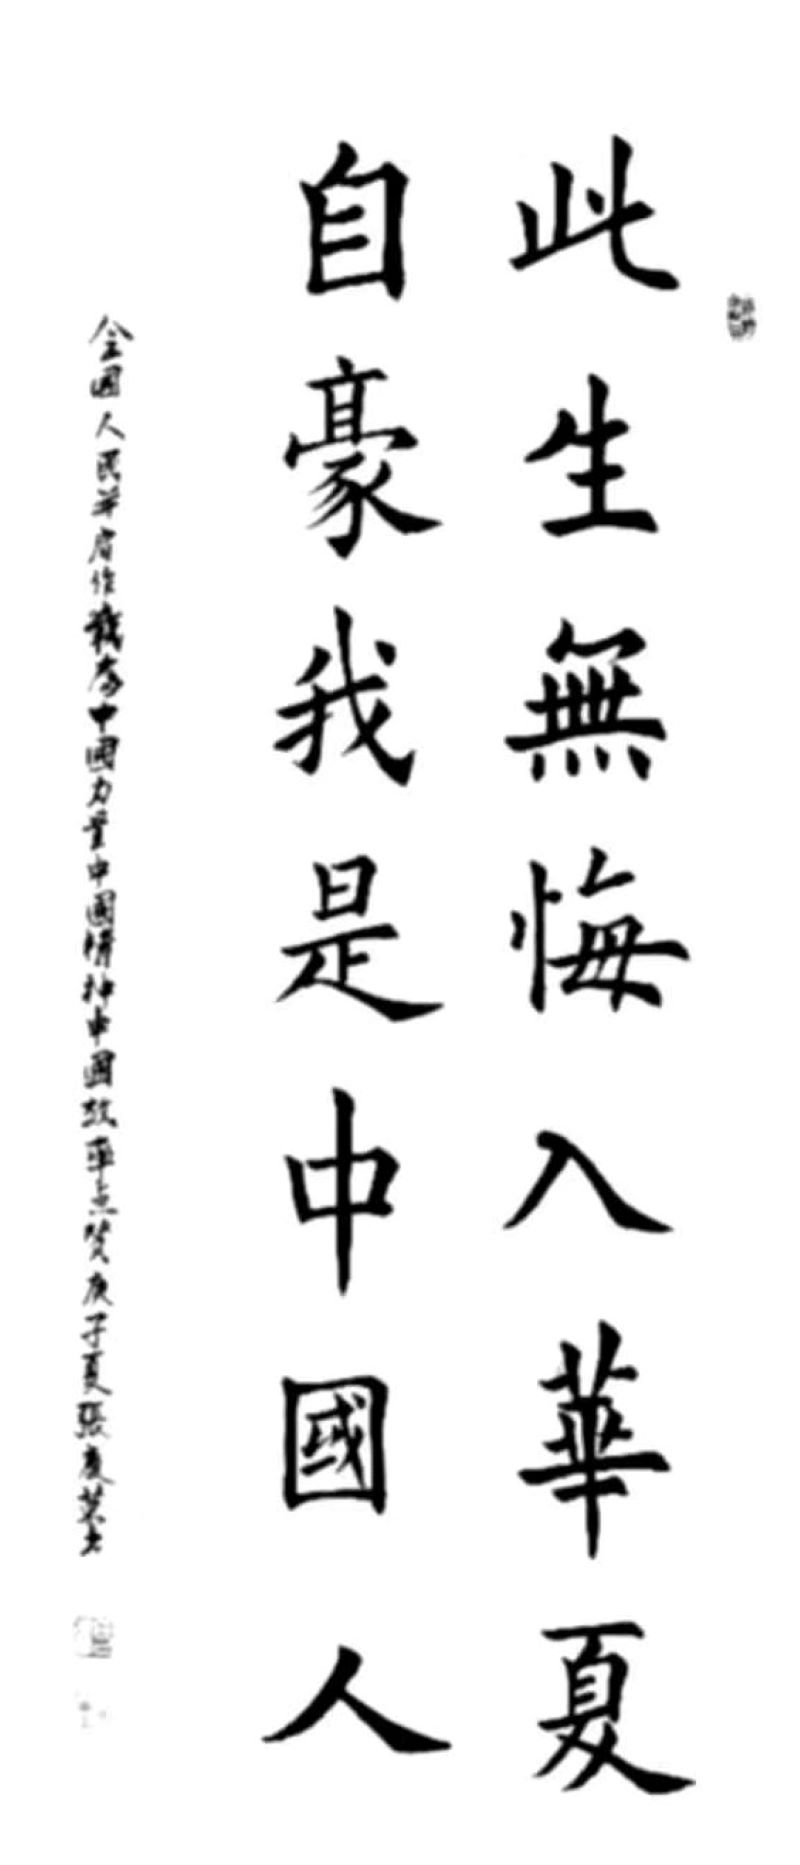 此生無悔入華夏
自豪我是中國人
全國人民並肩作戰為中國力量中國精神中國故事点赞庚子夏張庚書